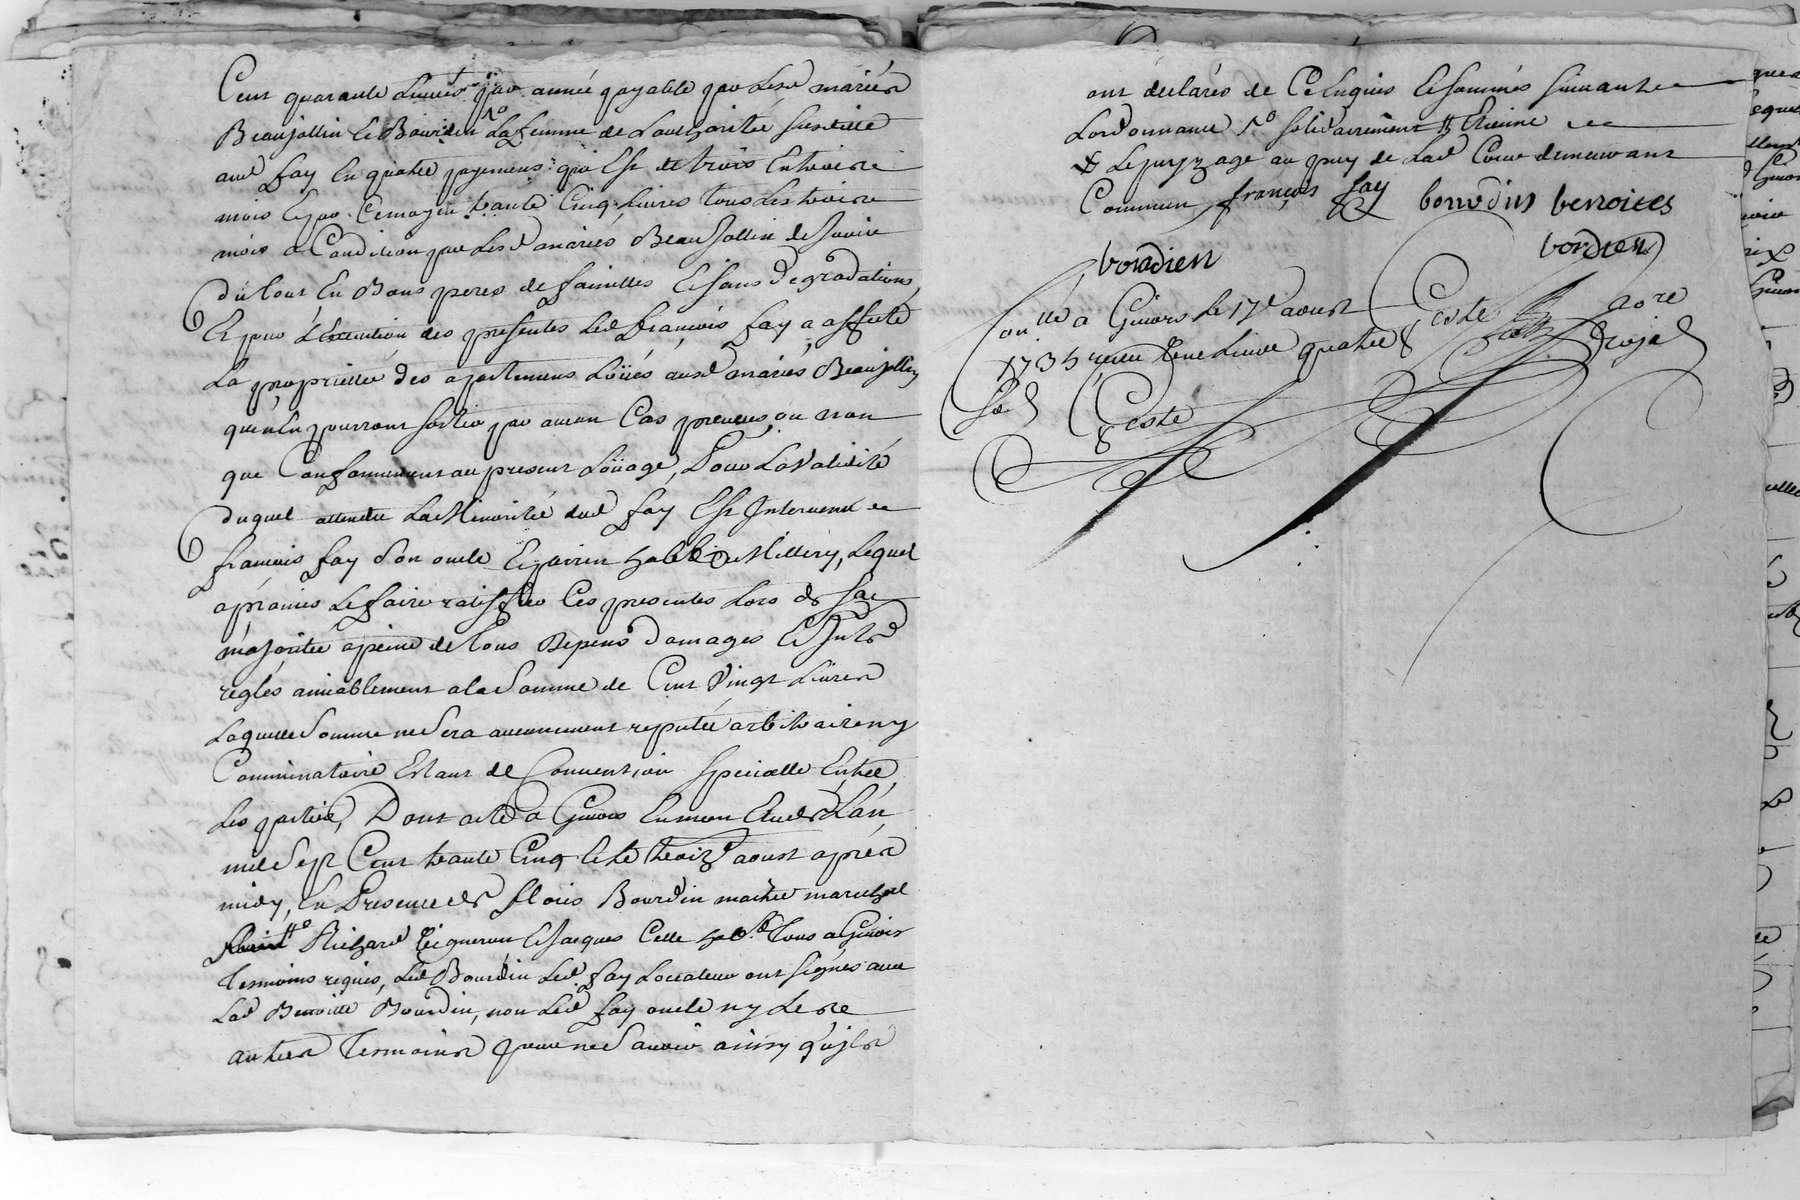 Cent quarante Livres par année payable par Lesd mariés
Beaujollin et Bourdin So La femme de Lauthorité susditte
aud fay En quatre payements qui Est de trois En trois
mois Et par Cemoyen trante Cinq Livres tous Les trois
mois a Condition que Lesd mariés Beaujollin de Jouir
du tout En Bons peres de familles Et sans degradations,
Et pour L'Execution des presentes Led françois fay a affecté
La proprietté des apartemens Loüés ausd mariés Beaujollin
qui n'En pourront sortir par aucun Cas preveus ou non
que Conformement au present Loüage, Pour La Validité
duquel attendu La Minorité dud fay Est Intervenu
françois fay Son oncle Et parrin habt a Millery, Lequel
a promis Le faire ratiffier Ces presentes Lors de sa
majorité apeine de tous depens Damages Et Jnts
reglés amiablement a la Somme de Cent Vingt Livres
Laquelle Somme ne Sera aucunement reputée arbitraire ny
Comminatoire Estant de Convention specialle Entre
Les parties, Dont acte a Givors En mon Etude L'an
mille Sept Cent trante Cinq Et Le treize aoust après
midy, En Presence de Floris Bourdin maitre marechal
Richard Et Jacques Celle habts tous a Givors
Temoins requis, Led Bourdin Led fay Locateur ont signés avec
Lad Benoitte Bourdin, non Led fay oncle ny Les
autres Temoins pour ne Sçavoir ainsy qu'ils
ont declarés de Ce Enquis Et sommés suivant
Lordonnance So Solidairement # Etienne
& Le puyzage au puy de Lad Cour demeurant
Commun françois fay borredin benoites
boradien bordien
Conllé a Givors le 17e aoust Coste nore
1735 receu Une Livre quatre Royal
Sols Coste